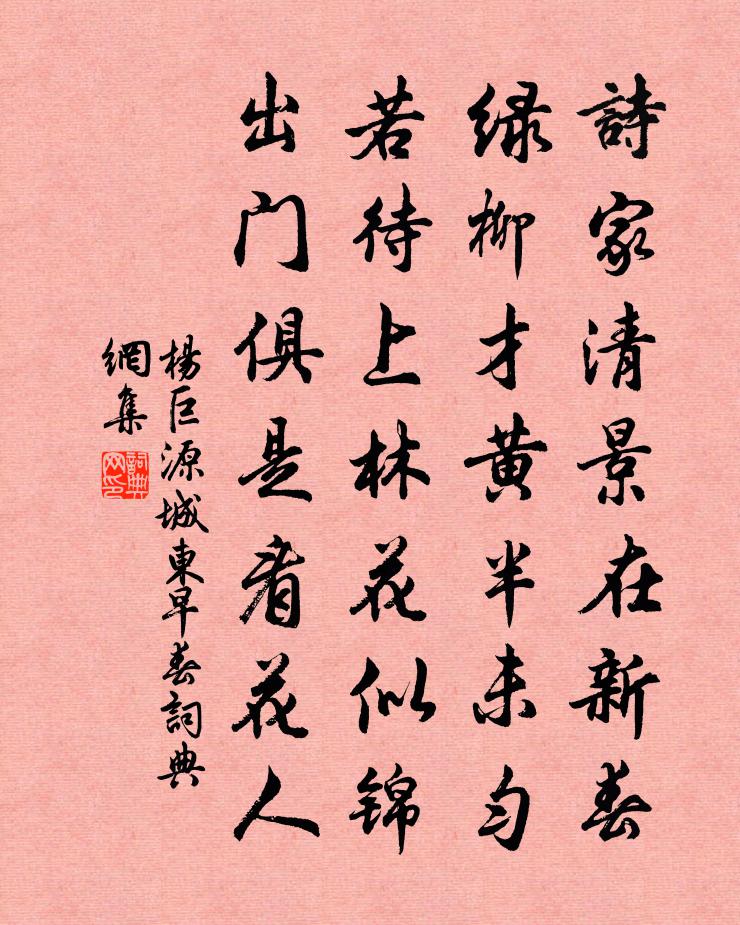 詩家清景在新春
绿柳才黄半未匀
若待上林花似锦
出门俱是看花人
楊巨源城東早春詞典
網集
詞典
网印